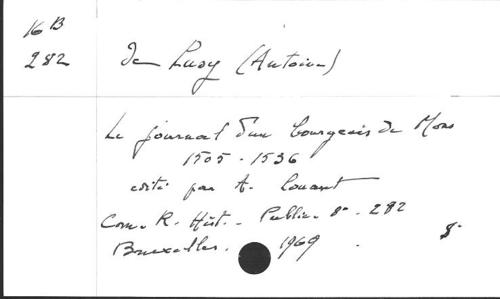 16 B
282
De Lusy (Antoine)
Le journal d'un bourgeois de Mons
1505 - 1536
édité par A. Louant
Com. R. Hist. - Public. 8° - 282
Bruxelles. 1969. 8°